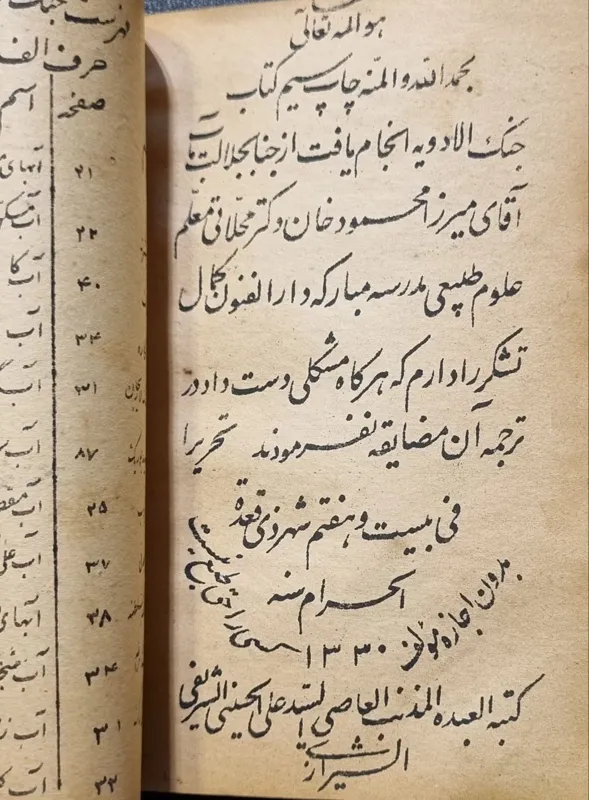 هوالله تعالی
بحمدالله والمنه چاپ سیم کتاب
جنک الادویه انجام یافت از جناب جلالت‌مآب
آقای میرزا محمود خان دکتر محلاتی معلم
علوم طبیعی مدرسه مبارکه دارالفنون کمال
تشکر را دارم که هر کاه مشکلی دست داد در
ترجمه آن مضایقه نفرمودند تحریرا
فی بیست و هفتم شهر ذی قعدة
الحرام سنه
۱۳۳۰
بدون اجازه مؤلف
کسی را حق طبع نیست
کتبه العبده المذنب العاصی السید علی الحسینی الشریفی
الشیرازی
حرف الف
صفحه
اسم
۲۱
آبهای
۲۲
۴۰
آب کا
۳۴
آب
۳۱
۸۷
۳۵
۳۷
آب علی
۳۸
آبهای
۳۴
۳۱
آب
۳۳